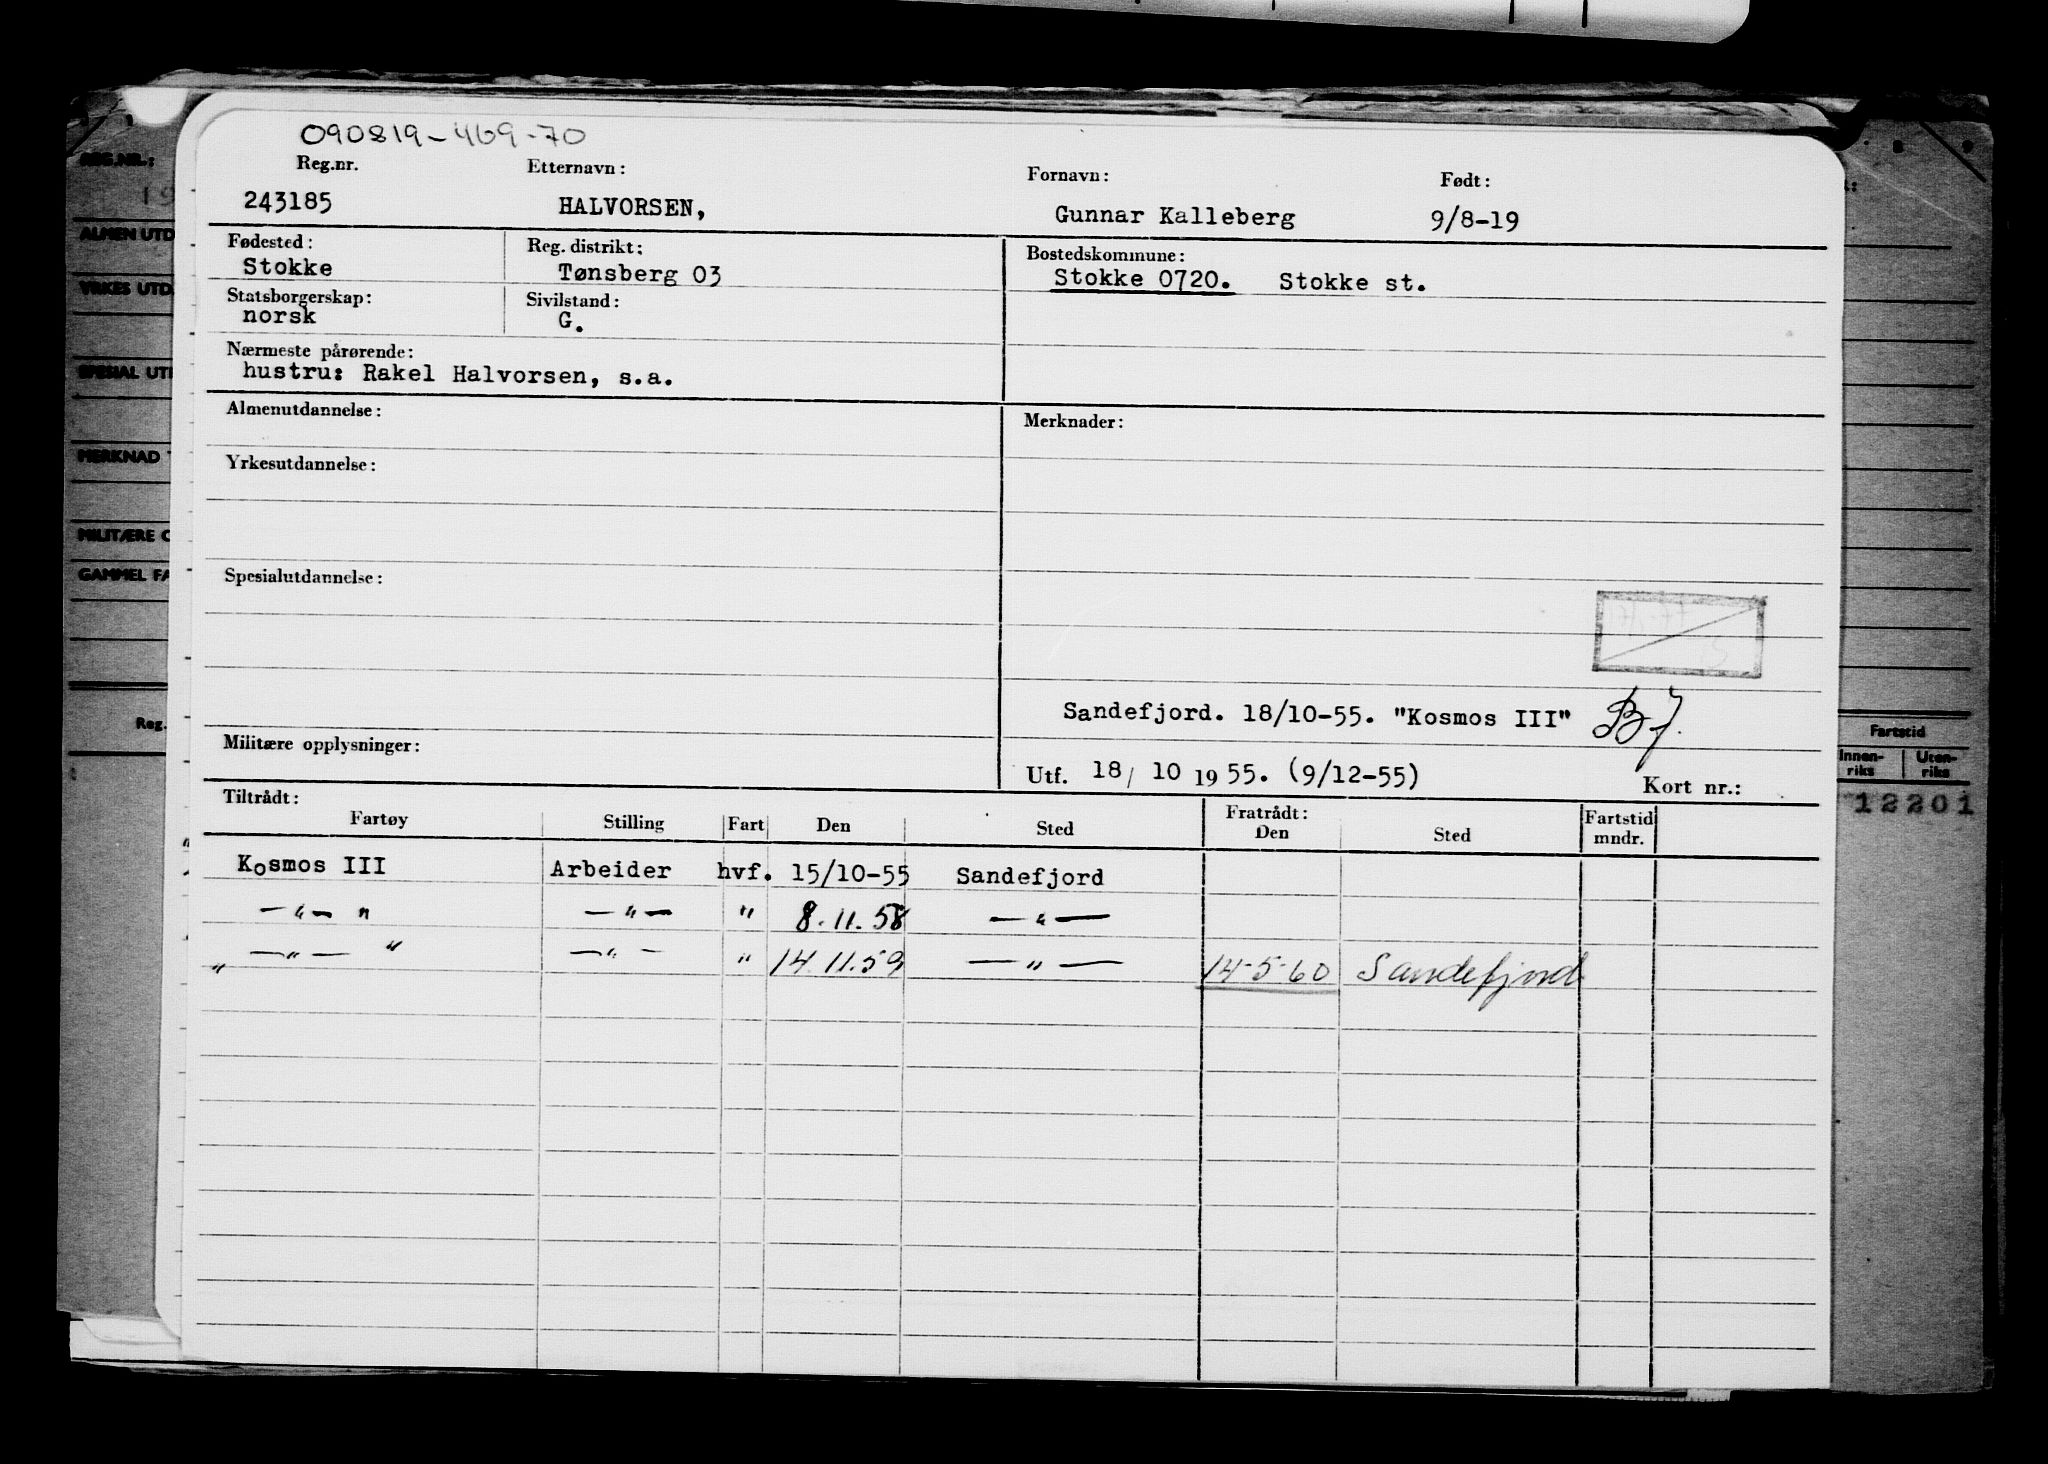 090819-469-70
Reg.nr. Etternavn: Fornavn: Født:
243185 HALVORSEN, Gunnar Kalleberg 9/8-19
Fødested: Reg. distrikt: Bostedskommune:
Stokke Tønsberg 03 Stokke 0720. Stokke st.
Statsborgerskap: Sivilstand:
norsk G.
Nærmeste pårørende:
hustru: Rakel Halvorsen, s.a.
Almenutdannelse: Merknader:
Yrkesutdannelse:
Spesialutdannelse:
Sandefjord. 18/10-55. "Kosmos III"
Militære opplysninger:
Utf. 18/ 10 1955. (9/12-55) Kort nr.:
Tiltrådt: Fratrådt:
Fartøy Stilling Fart Den Sted Den Sted Fartstid mndr.
Kosmos III Arbeider hvf. 15/10-55 Sandefjord
—"— " —"— " 8.11.58 —"—
—"— " —"— " 14.11.59 —"— 14-5-60 Sandefjord
REG.NR.:
ALMEN UTD
YRKES UTD.
SPESIAL UT
MERKNAD
MILITÆRE O
GAMMEL FA
Reg.
Fartstid
Innen-riks Uten-riks
12201